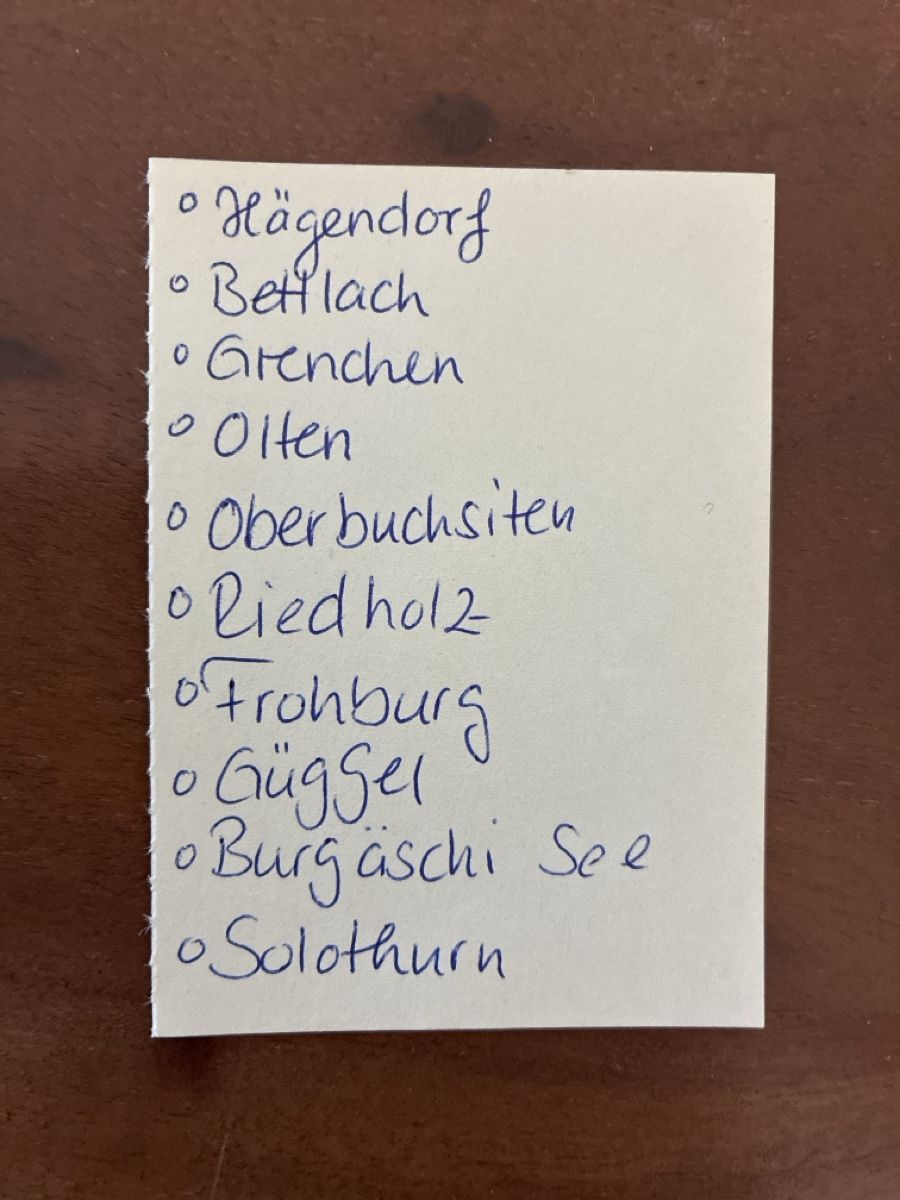 o Hägendorf
o Bettlach
o Grenchen
o Olten
o Oberbuchsiten
o Riedholz
o Frohburg
o Güggel
o Burgäschi See
o Solothurn